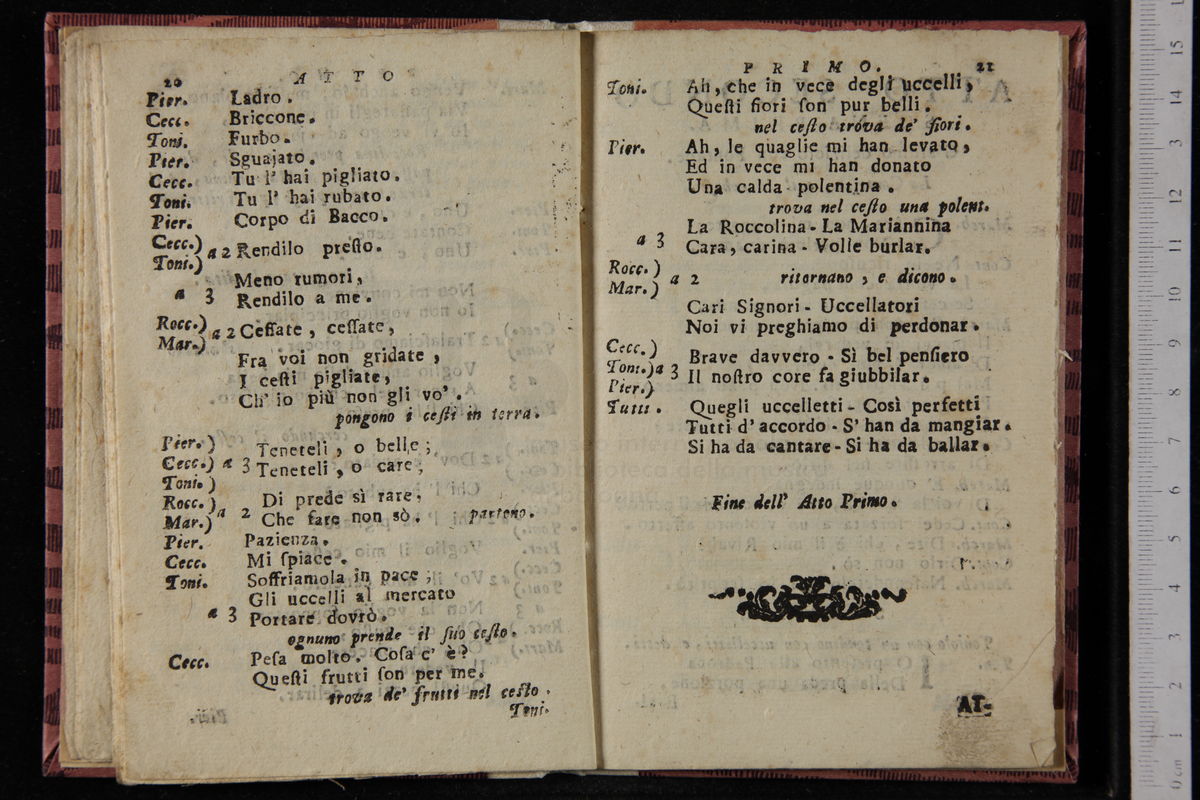 20 ATTO
Pier. Ladro.
Cecc. Briccone.
Toni. Furbo.
Pier. Sguajato.
Cecc. Tu l' hai pigliato.
Toni. Tu l' hai rubato.
Pier. Corpo di Bacco.
Cecc.)
Toni.) a 2 Rendilo preſto.
Meno rumori,
a 3 Rendilo a me.
Rocc.)
Mar.) a 2 Ceſſate, ceſſate,
Fra voi non gridate,
I ceſti pigliate,
Ch' io più non gli vo'.
pongono i ceſti in terra.
Pier.) Teneteli, o belle;
Cecc.) a 3 Teneteli, o care;
Toni.)
Rocc.) Di prede sì rare,
Mar.) a 2 Che fare non sò. partono.
Pier. Pazienza.
Cecc. Mi ſpiace.
Toni. Soffriamola in pace;
Gli uccelli al mercato
a 3 Portare dovrò.
ognuno prende il ſuo ceſto.
Cecc. Peſa molto. Coſa c' è?
Queſti frutti ſon per me.
trova de' frutti nel ceſto.
Toni.
PRIMO. 21
Toni. Ah, che in vece degli uccelli,
Queſti fiori ſon pur belli.
nel ceſto trova de' fiori.
Pier. Ah, le quaglie mi han levato,
Ed in vece mi han donato
Una calda polentina.
trova nel ceſto una polent.
La Roccolina - La Mariannina
a 3 Cara, carina - Volle burlar.
Rocc.)
Mar.) a 2 ritornano, e dicono.
Cari Signori - Uccellatori
Noi vi preghiamo di perdonar.
Cecc.) Brave davvero - Sì bel penſiero
Toni.) a 3 Il noſtro core fa giubbilar.
Pier.)
Tutti. Quegli uccelletti - Così perfetti
Tutti d' accordo - S' han da mangiar.
Si ha da cantare - Si ha da ballar.
Fine dell' Atto Primo.
AT-